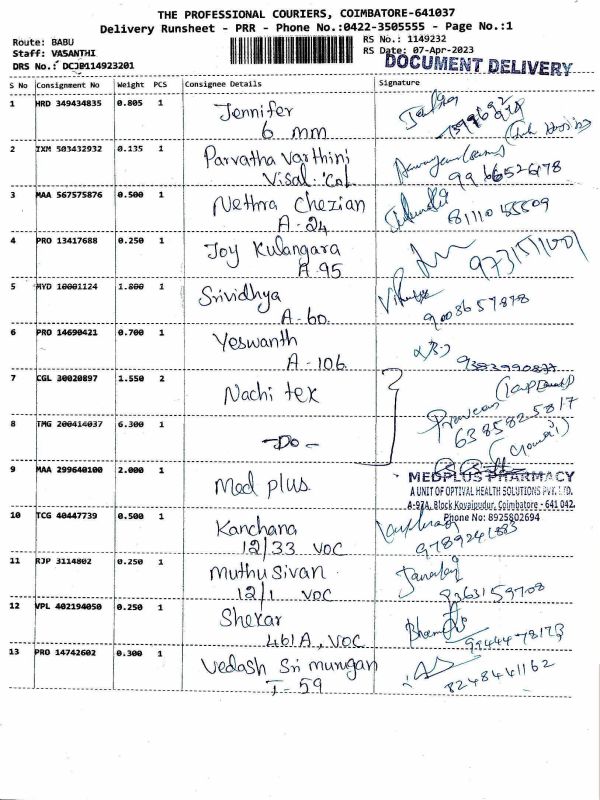 THE PROFESSIONAL COURIERS, COIMBATORE-641037
Delivery Runsheet - PRR - Phone No.:0422-3505555 - Page No.:1
Route: BABU
Staff: VASANTHI
DRS No.: DCJB114923201
RS No.: 1149232
RS Date: 07-Apr-2023
DOCUMENT DELIVERY
S No Consignment No Weight PCS Consignee Details Signature
1 HRD 349434835 0.805 1 Jennifer
6 mm
2 IXM 503432932 0.135 1 Parvatha Varthini
Visal Col
9966526178
3 MAA 567575876 0.500 1 Nethra Chezian
A-24
8111045509
4 PRO 13417688 0.250 1 Joy Kulangara
A-95
5 MYD 10001124 1.800 1 Srividhya
A-60
9003657878
6 PRO 14690421 0.700 1 Yeswanth
A-106
7 CGL 30020897 1.550 2 Nachi tex
Praveen
6385825817
8 TMG 200414037 6.300 1 -Do-
9 MAA 299640100 2.000 1 Med plus
MEDPLUS PHARMACY
A UNIT OF OPTIVAL HEALTH SOLUTIONS PVT. LTD.
A-97A, Block Kovaipudur, Coimbatore - 641 042.
Phone No: 8925802694
10 TCG 40447739 0.500 1 Kanchana
12/33 VOC
11 RJP 3114802 0.250 1 Muthu Sivan
12/1 VOC
9363159708
12 VPL 402194050 0.250 1 Shekar
461A, VOC
13 PRO 14742602 0.300 1 Vedash Sri murugan
I-59
8248441162